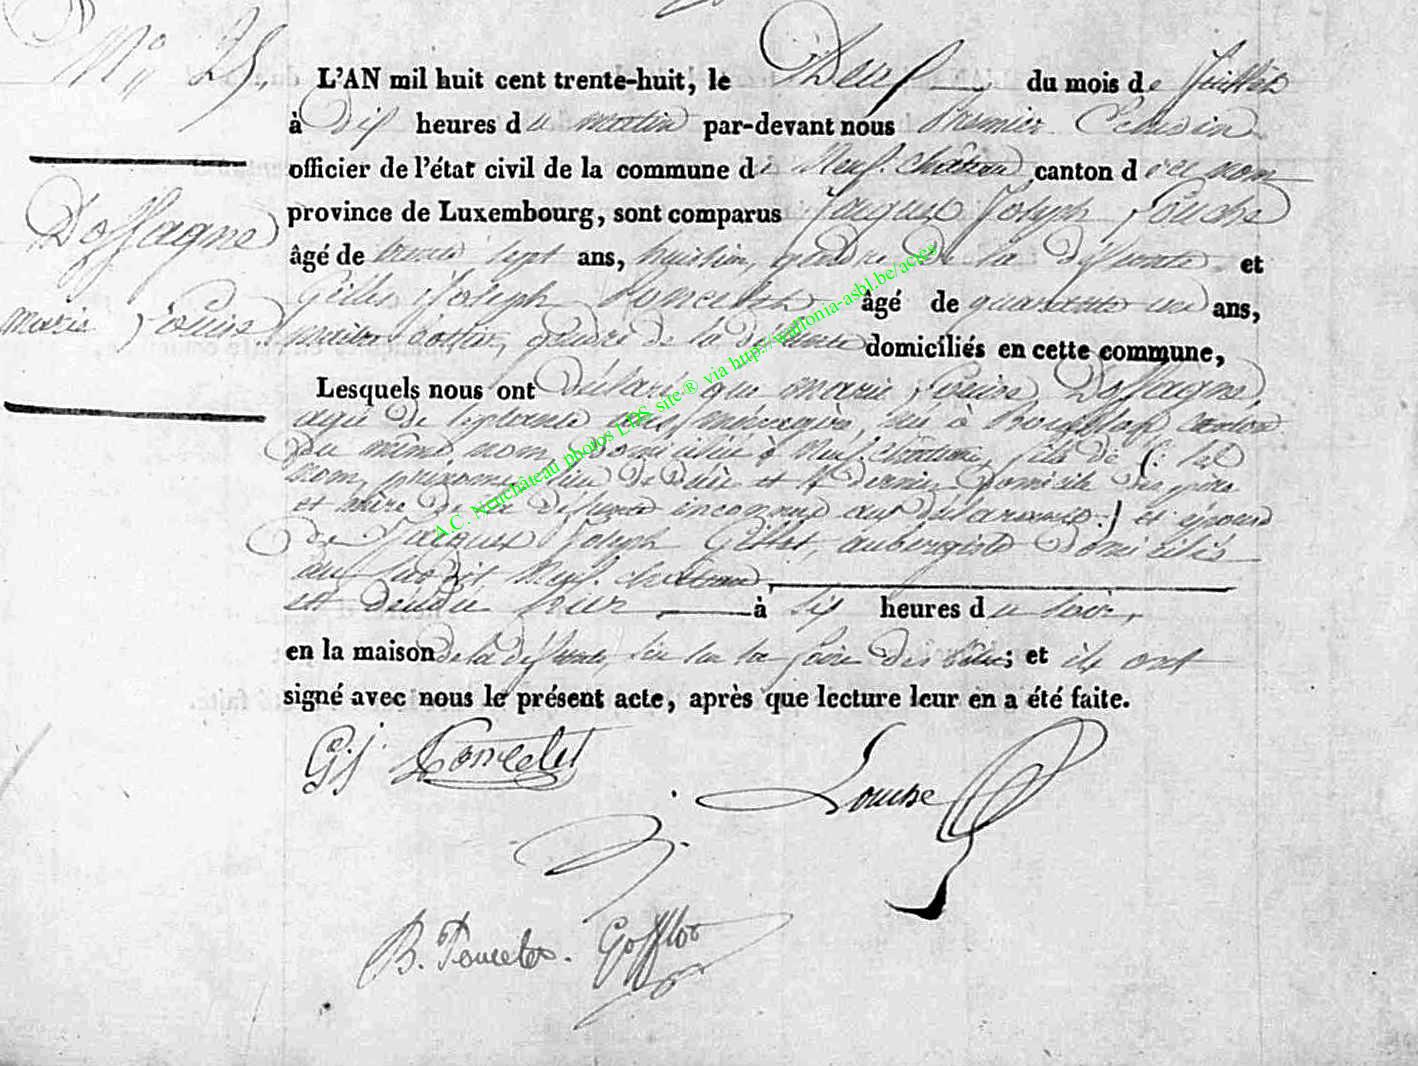 N° 25.
Doffagne
marie Louise.
L'AN mil huit cent trente-huit, le Deux du mois de Juillet
à dix heures du matin par-devant nous premier
officier de l'état civil de la commune de Neufchâteau canton d ce nom
province de Luxembourg, sont comparus Jacques Joseph Louche
âgé de trente sept ans, huissier, gendre de la défunte et
Gilles Joseph Poncelet âgé de quarante un ans,
gendre de la défunte domiciliés en cette commune,
Lesquels nous ont déclaré que marie Louise Doffagne,
agée de septante ans, ménagère, née à canton
du même nom, domiciliée à Neufchâteau, fille de (: les
nom, prénoms, lieu de décès et dernier domicile des père
et mère de la défunte inconnus aux déclarants:) et épouse
de Jacques Joseph aubergiste domicilié
au dit Neufchâteau
est décédée hier à six heures du soir,
en la maison de la défunte, ; et ils ont
signé avec nous le présent acte, après que lecture leur en a été faite.
G: J: Poncelet Louche
B. Poncelet. Gofflot
A.C. Neuchâteau photos LDS site ® via http://wallonia-asbl.be/actes